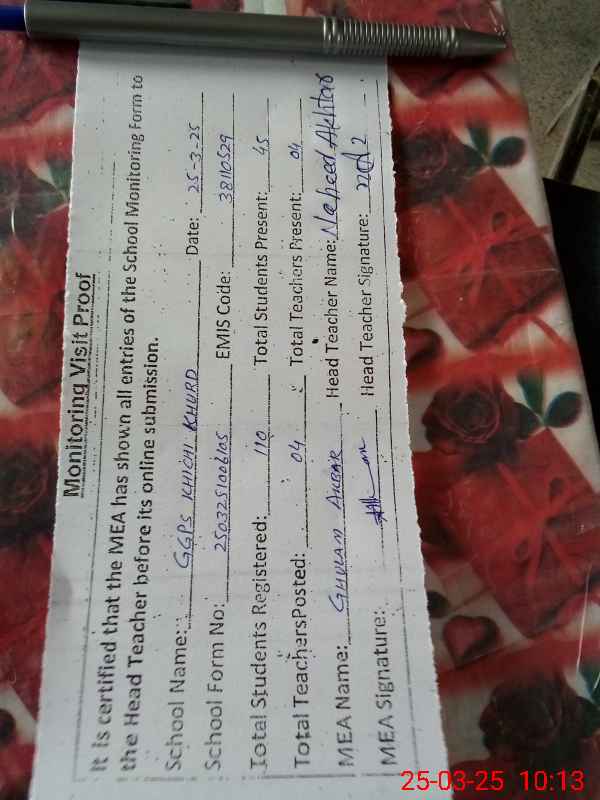 Monitoring Visit Proof
It is certified that the MEA has shown all entries of the School Monitoring Form to
the Head Teacher before its online submission.
School Name: GGPS KHICHI KHURD Date: 25-3-25
School Form No: 2503251006105 EMIS Code: 38110529
Total Students Registered: 110 Total Students Present: 45
Total TeachersPosted: 04 Total Teachers Present: 04
MEA Name: GHULAM AKBAR Head Teacher Name: Naheed Akhtar
MEA Signature: Head Teacher Signature:
25-03-25 10:13